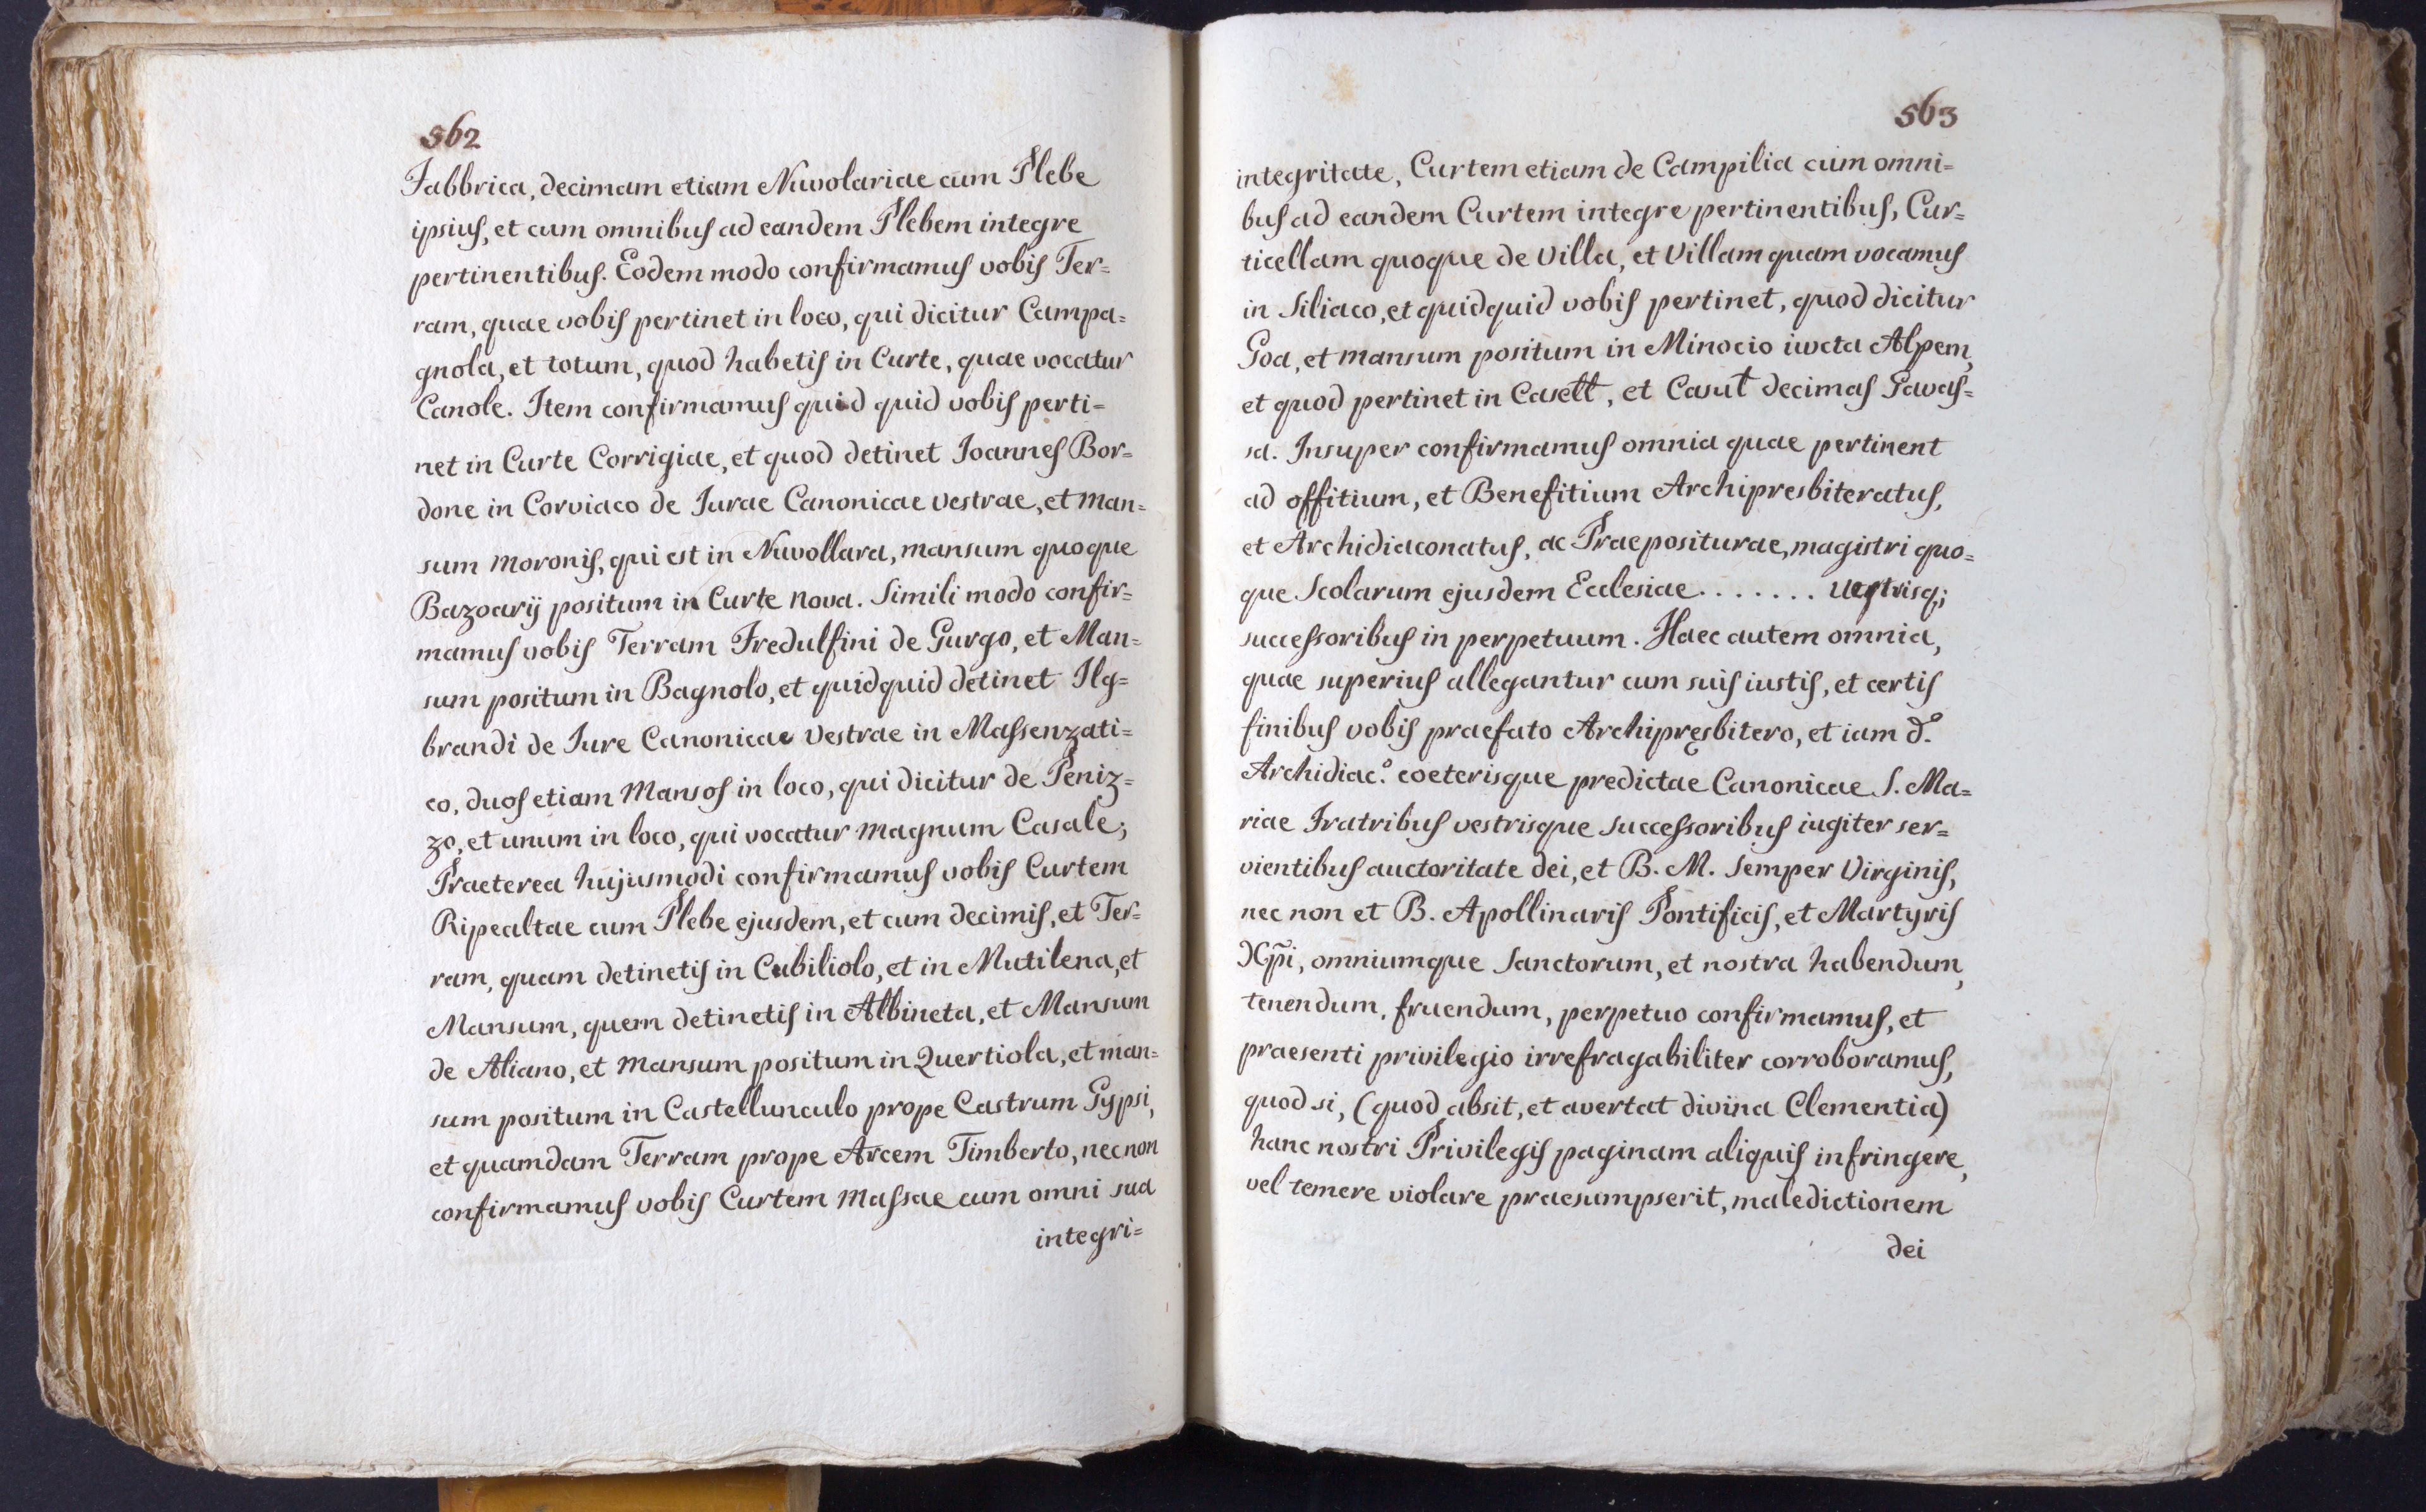 562
Fabbrica, decimam etiam Nuvolariae cum Plebe
ipsius, et cum omnibus ad eandem Plebem integre
pertinentibus. Eodem modo confirmamus vobis Ter=
ram, quae vobis pertinet in loco, qui dicitur Campa=
gnola, et totum, quod habetis in Curte, quae vocatur
Canole. Item confirmamus quid quid vobis perti=
net in Curte Corrigiae, et quod detinet Joannes Bor=
done in Corviaco de Jurae Canonicae vestrae, et man=
sum moronis, qui est in Nuvollara, mansum quoque
Bazoarij positum in Curte nova. Simili modo confir=
mamus vobis Terram Fredulfini de Gurgo, et Man=
sum positum in Bagnolo, et quidquid detinet Ilg=
brandi de Jure Canonicae vestrae in Massenzati=
co, duos etiam Mansos in loco, qui dicitur de Peniz=
zo, et unum in loco, qui vocatur magnum Casale;
Praeterea hujusmodi confirmamus vobis Curtem
Ripealtae cum Plebe ejusdem, et cum decimis, et Ter=
ram, quam detinetis in Cubiliolo, et in Mutilena, et
Mansum, quem detinetis in Albineta, et Mansum
de Aliano, et mansum positum in Quertiola, et man=
sum positum in Castellunculo prope Castrum Gypsi,
et quamdam Terram prope Arcem Timberto, nec non
confirmamus vobis Curtem Massae cum omni sua
integri=
563
integritate, Curtem etiam de Campilia cum omni=
bus ad eandem Curtem integre pertinentibus, Cur=
ticellam quoque de Villa, et Villam quam vocamus
in Siliaco, et quidquid vobis pertinet, quod dicitur
Goa, et mansum positum in Minocio iuxta Alpem,
et quod pertinet in Casett, et Casut decimas Gavas=
sa. Insuper confirmamus omnia quae pertinent
ad offitium, et Benefitium Archipresbiteratus,
et Archidiaconatus, ac Praepositurae, magistri quo=
que Scolarum ejusdem Ecclesiae....... vestrisq;
successoribus in perpetuum. Haec autem omnia,
quae superius allegantur cum suis iustis, et certis
finibus vobis praefato Archipręsbitero, et iam d.º
Archidiac.º coeterisque predictae Canonicae S. Ma=
riae Fratribus vestrisque successoribus iugiter ser=
vientibus auctoritate dei, et B. M. semper Virginis,
nec non et B. Apollinaris Pontificis, et Martyris
Xp̃i, omniumque Sanctorum, et nostra habendum,
tenendum, fruendum, perpetuo confirmamus, et
praesenti privilegio irrefragabiliter corroboramus,
quod si, (quod absit, et avertat divina Clementia)
hanc nostri Privilegis paginam aliquis infringere,
vel temere violare praesumpserit, maledictionem
dei